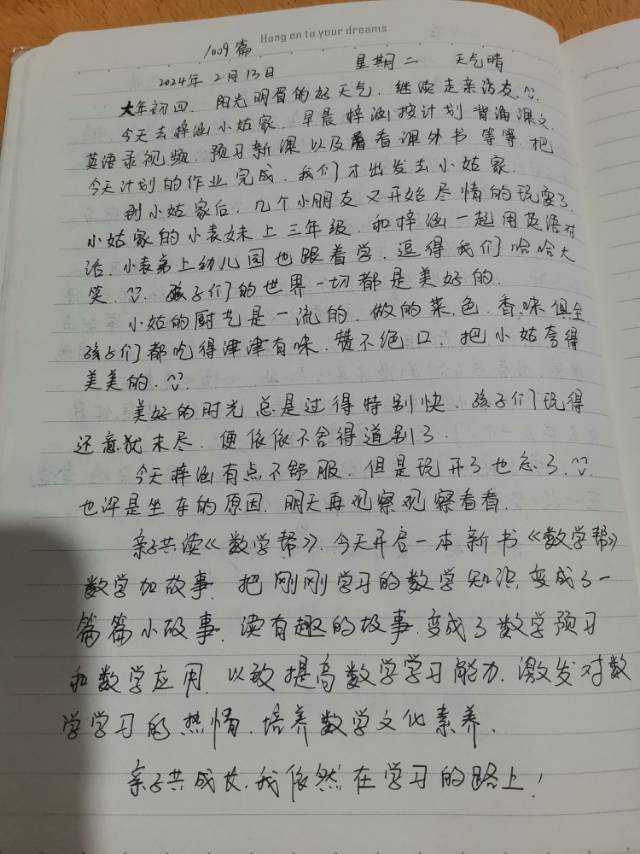 Hang on to your dreams
1009篇
2024年2月13日 星期二 天气晴
大年初四. 阳光明眉的好天气. 继续走亲访友.
今天去梓涵小姑家. 早晨梓涵按计划背诵课文.
英语录视频. 预习新课以及看看课外书等等. 把
今天计划的作业完成. 我们才出发去小姑家.
到小姑家后. 几个小朋友又开始尽情的玩耍了.
小姑家的小表妹上三年级. 和梓涵一起用英语对
话. 小表弟上幼儿园也跟着学. 逗得我们哈哈大
笑. 孩子们的世界一切都是美好的.
小姑的厨艺是一流的. 做的菜. 色. 香. 味俱全
孩子们都吃得津津有味. 赞不绝口. 把小姑夸得
美美的.
美好的时光总是过得特别快. 孩子们玩得
还意犹未尽. 便依依不舍得道别了.
今天梓涵有点不舒服. 但是玩开了也忘了.
也许是坐车的原因. 明天再观察观察看看.
亲子共读《数学帮》. 今天开启一本新书《数学帮》
数学加故事. 把刚刚学习的数学知识. 变成了一
篇篇小故事. 读有趣的故事. 变成了数学预习
和数学应用. 以致提高数学学习能力. 激发对数
学学习的热情. 培养数学文化素养.
亲子共成长. 我依然在学习的路上!